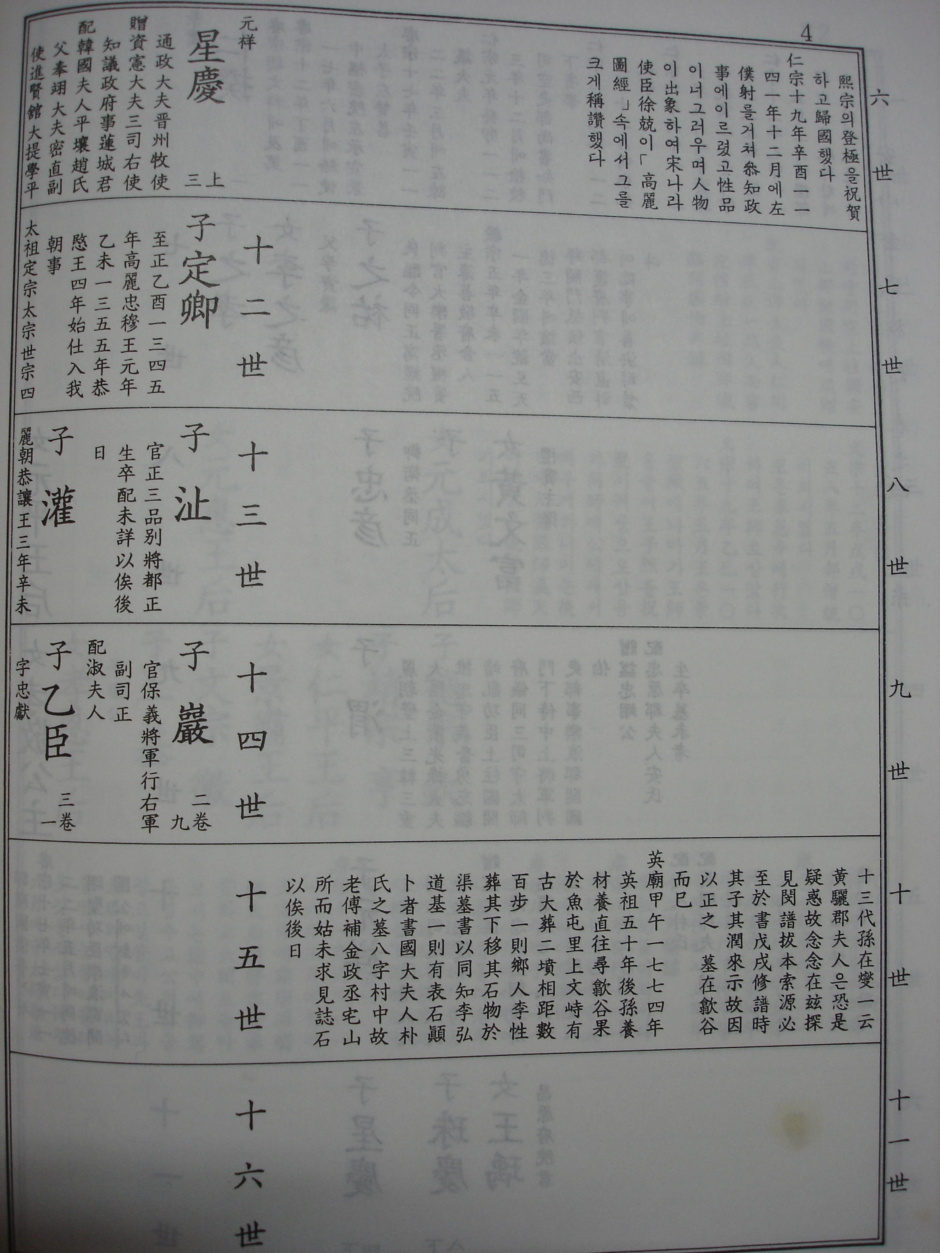 4
六世
熙宗의登極을祝賀
하고歸國했다
仁宗十九年辛酉一一
四一年十二月에左
僕射를거쳐叅知政
事에이르렀고性品
이너그러우며人物
이出象하여宋나라
使臣徐兢이「高麗
圖經」속에서그를
크게稱讚했다
元样
星慶
三上
通政大夫晋州牧使
贈資憲大夫三司右使
知議政府事蓮城君
配韓國夫人平壤趙氏
父奉翊大夫密直副
使進賢館大提學平
七世
十二世
子定卿
至正乙酉一三四五
年高麗忠穆王元年
乙未一三五五年恭
愍王四年始仕入我
朝事
太祖定宗太宗世宗四
八世
十三世
子沚
官正三品别將都正
生卒配未詳以俟後
日
子灌
麗朝恭讓王三年辛未
九世
十四世
子巖
二卷
九
官保義將軍行右軍
副司正
配淑夫人
子乙臣
三卷
一
字忠獻
十世
十三代孫在燮一云
黃驪郡夫人은恐是
疑惑故念念在玆探
見閔譜拔本索源必
至於書戊戌修譜時
其子其潤來示故因
以正之 墓在歙谷
而已
英廟甲午一七七四年
英祖五十年後孫養
材養直往尋歙谷果
於魚屯里上文峙有
古大葬二墳相距數
百步一則鄉人李性
葬其下移其石物於
渠墓書以同知李弘
道基一則有表石顚
卜者書國大夫人朴
氏之墓八字村中故
老傅補金政丞宅山
所而姑未求見誌石
以俟後日
十五世
十一世
十六世